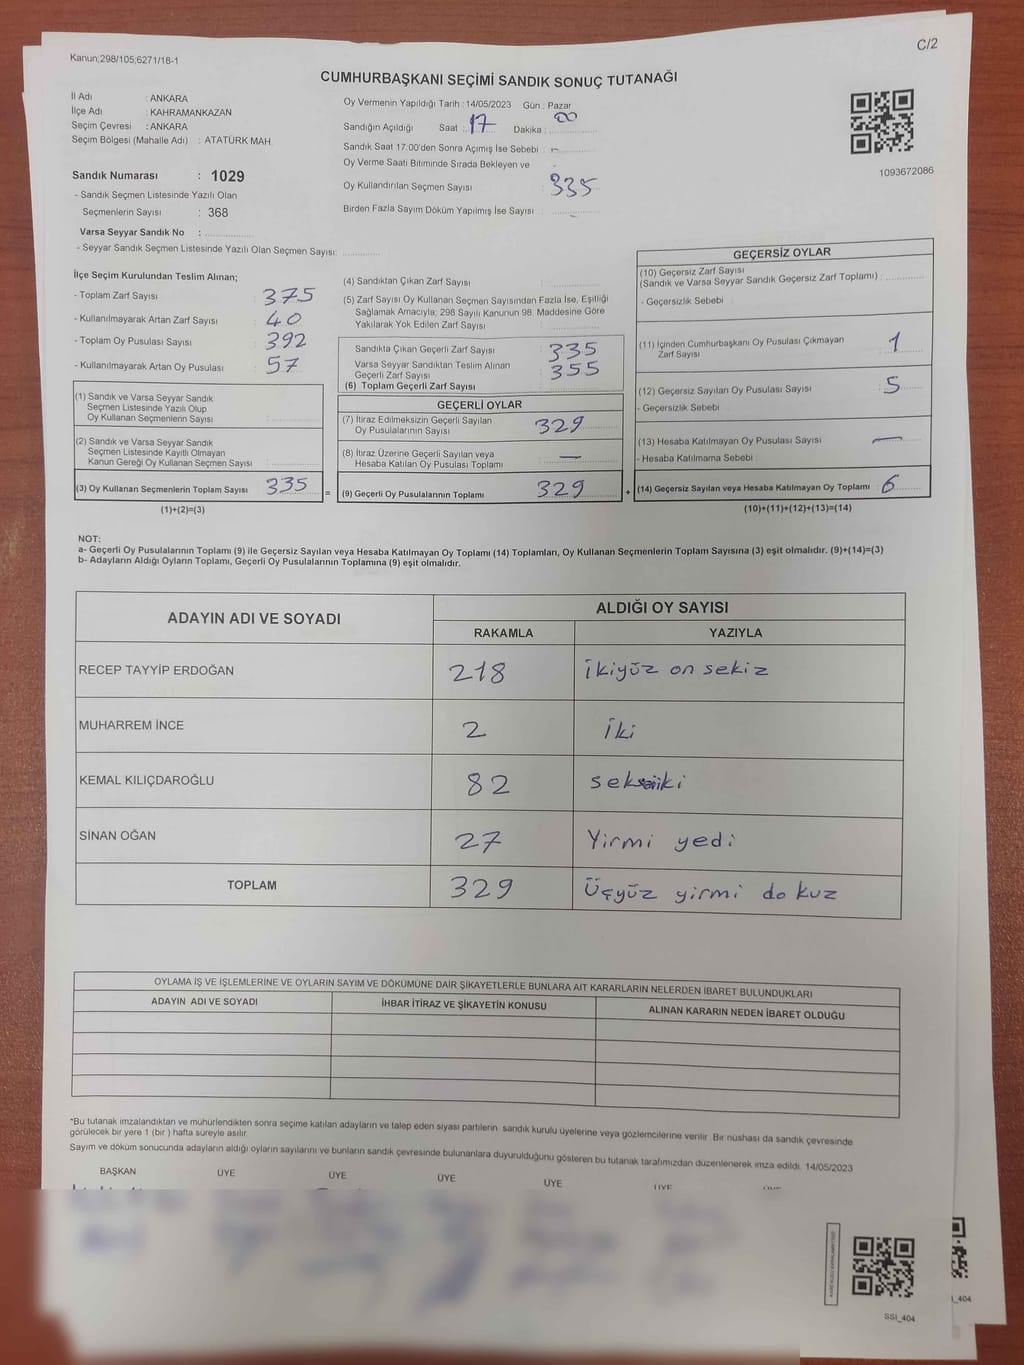 C/2
Kanun;298/105;6271/18-1
CUMHURBAŞKANI SEÇİMİ SANDIK SONUÇ TUTANAĞI
İl Adı : ANKARA
İlçe Adı : KAHRAMANKAZAN
Seçim Çevresi : ANKARA
Seçim Bölgesi (Mahalle Adı) : ATATÜRK MAH.
Sandık Numarası : 1029
- Sandık Seçmen Listesinde Yazılı Olan
Seçmenlerin Sayısı : 368
Varsa Seyyar Sandık No :
- Seyyar Sandık Seçmen Listesinde Yazılı Olan Seçmen Sayısı:
Oy Vermenin Yapıldığı Tarih : 14/05/2023 Gün : Pazar
Sandığın Açıldığı Saat : 17 Dakika : 00
Sandık Saat 17:00'den Sonra Açımış İse Sebebi : -
Oy Verme Saati Bitiminde Sırada Bekleyen ve
Oy Kullandırılan Seçmen Sayısı : 335
Birden Fazla Sayım Döküm Yapılmış İse Sayısı :
1093672086
İlçe Seçim Kurulundan Teslim Alınan;
- Toplam Zarf Sayısı : 375
- Kullanılmayarak Artan Zarf Sayısı : 40
- Toplam Oy Pusulası Sayısı : 392
- Kullanılmayarak Artan Oy Pusulası : 57
(1) Sandık ve Varsa Seyyar Sandık
Seçmen Listesinde Yazılı Olup
Oy Kullanan Seçmenlerin Sayısı :
(2) Sandık ve Varsa Seyyar Sandık
Seçmen Listesinde Kayıtlı Olmayan
Kanun Gereği Oy Kullanan Seçmen Sayısı :
(3) Oy Kullanan Seçmenlerin Toplam Sayısı 335
(1)+(2)=(3)
(4) Sandıktan Çıkan Zarf Sayısı :
(5) Zarf Sayısı Oy Kullanan Seçmen Sayısından Fazla İse, Eşitliği
Sağlamak Amacıyla; 298 Sayılı Kanunun 98. Maddesine Göre
Yakılarak Yok Edilen Zarf Sayısı :
Sandıkta Çıkan Geçerli Zarf Sayısı : 335
Varsa Seyyar Sandıktan Teslim Alınan
Geçerli Zarf Sayısı : 355
(6) Toplam Geçerli Zarf Sayısı
GEÇERLİ OYLAR
(7) İtiraz Edilmeksizin Geçerli Sayılan
Oy Pusulalarının Sayısı : 329
(8) İtiraz Üzerine Geçerli Sayılan veya
Hesaba Katılan Oy Pusulası Toplamı : —
= (9) Geçerli Oy Pusulalarının Toplamı : 329
GEÇERSİZ OYLAR
(10) Geçersiz Zarf Sayısı
(Sandık ve Varsa Seyyar Sandık Geçersiz Zarf Toplamı) :
- Geçersizlik Sebebi :
(11) İçinden Cumhurbaşkanı Oy Pusulası Çıkmayan
Zarf Sayısı : 1
(12) Geçersiz Sayılan Oy Pusulası Sayısı : 5
- Geçersizlik Sebebi :
(13) Hesaba Katılmayan Oy Pusulası Sayısı : —
- Hesaba Katılmama Sebebi :
+ (14) Geçersiz Sayılan veya Hesaba Katılmayan Oy Toplamı : 6
(10)+(11)+(12)+(13)=(14)
NOT:
a- Geçerli Oy Pusulalarının Toplamı (9) ile Geçersiz Sayılan veya Hesaba Katılmayan Oy Toplamı (14) Toplamları, Oy Kullanan Seçmenlerin Toplam Sayısına (3) eşit olmalıdır. (9)+(14)=(3)
b- Adayların Aldığı Oyların Toplamı, Geçerli Oy Pusulalarının Toplamına (9) eşit olmalıdır.
ADAYIN ADI VE SOYADI ALDIĞI OY SAYISI
RAKAMLA YAZIYLA
RECEP TAYYİP ERDOĞAN 218 ikiyüz on sekiz
MUHARREM İNCE 2 İki
KEMAL KILIÇDAROĞLU 82 seksəniki
SİNAN OĞAN 27 Yirmi yedi
TOPLAM 329 Üçyüz yirmi dokuz
OYLAMA İŞ VE İŞLEMLERİNE VE OYLARIN SAYIM VE DÖKÜMÜNE DAİR ŞİKAYETLERLE BUNLARA AİT KARARLARIN NELERDEN İBARET BULUNDUKLARI
ADAYIN ADI VE SOYADI İHBAR İTİRAZ VE ŞİKAYETİN KONUSU ALINAN KARARIN NEDEN İBARET OLDUĞU
*Bu tutanak imzalandıktan ve mühürlendikten sonra seçime katılan adayların ve talep eden siyasi partilerin sandık kurulu üyelerine veya gözlemcilerine verilir. Bir nüshası da sandık çevresinde
görülecek bir yere 1 (bir ) hafta süreyle asılır.
Sayım ve döküm sonucunda adayların aldığı oyların sayılarını ve bunların sandık çevresinde bulunanlara duyurulduğunu gösteren bu tutanak tarafımızdan düzenlenerek imza edildi. 14/05/2023
BAŞKAN ÜYE ÜYE ÜYE ÜYE ÜYE
SSI_404